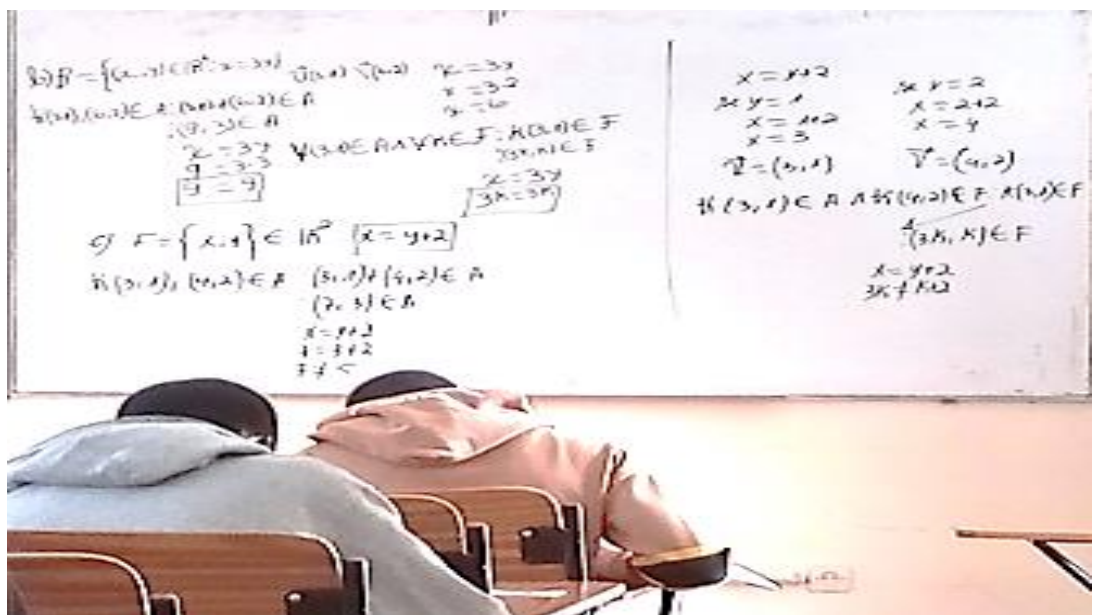 b) B = {(x, y) ∈ R²: x = 3y} U(3,1) V(6,2) x = 3y
x = 3·2
x = 6
(3,1), (6,2) ∈ A: (3,1)+(6,2) ∈ A
(9, 3) ∈ A
x = 3y
9 = 3·3
9 = 9
∀(3,1) ∈ A ∧ ∀K ∈ F: K(3,1) ∈ F
(3K, K) ∈ F
x = 3y
3K = 3K
c) F = {x, y} ∈ R² (x = y+2)
(3,1), (4,2) ∈ A (3,1)+(4,2) ∈ A
(7, 3) ∈ A
x = y+2
7 = 3+2
7 ≠ 5
x = y+2
se y = 1
x = 1+2
x = 3
U = (3,1)
se y = 2
x = 2+2
x = 4
V = (4,2)
(3,1) ∈ A ∧ (4,2) ∈ F K(3,1) ∈ F
(3K, K) ∈ F
x = y+2
3K ≠ K+2